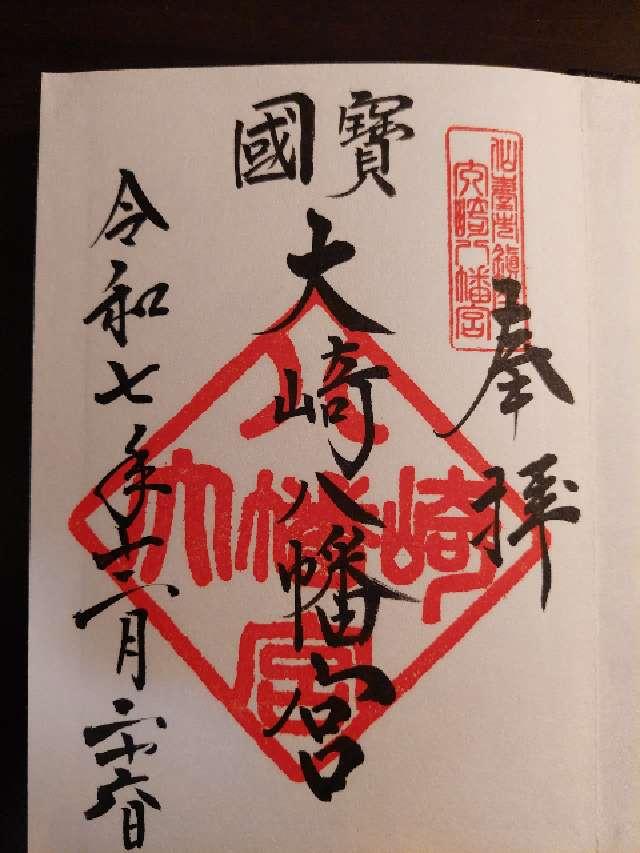 奉拝
大崎八幡宮
國寶
大崎八幡宮
大崎八幡宮
令和七年十二月二十六日